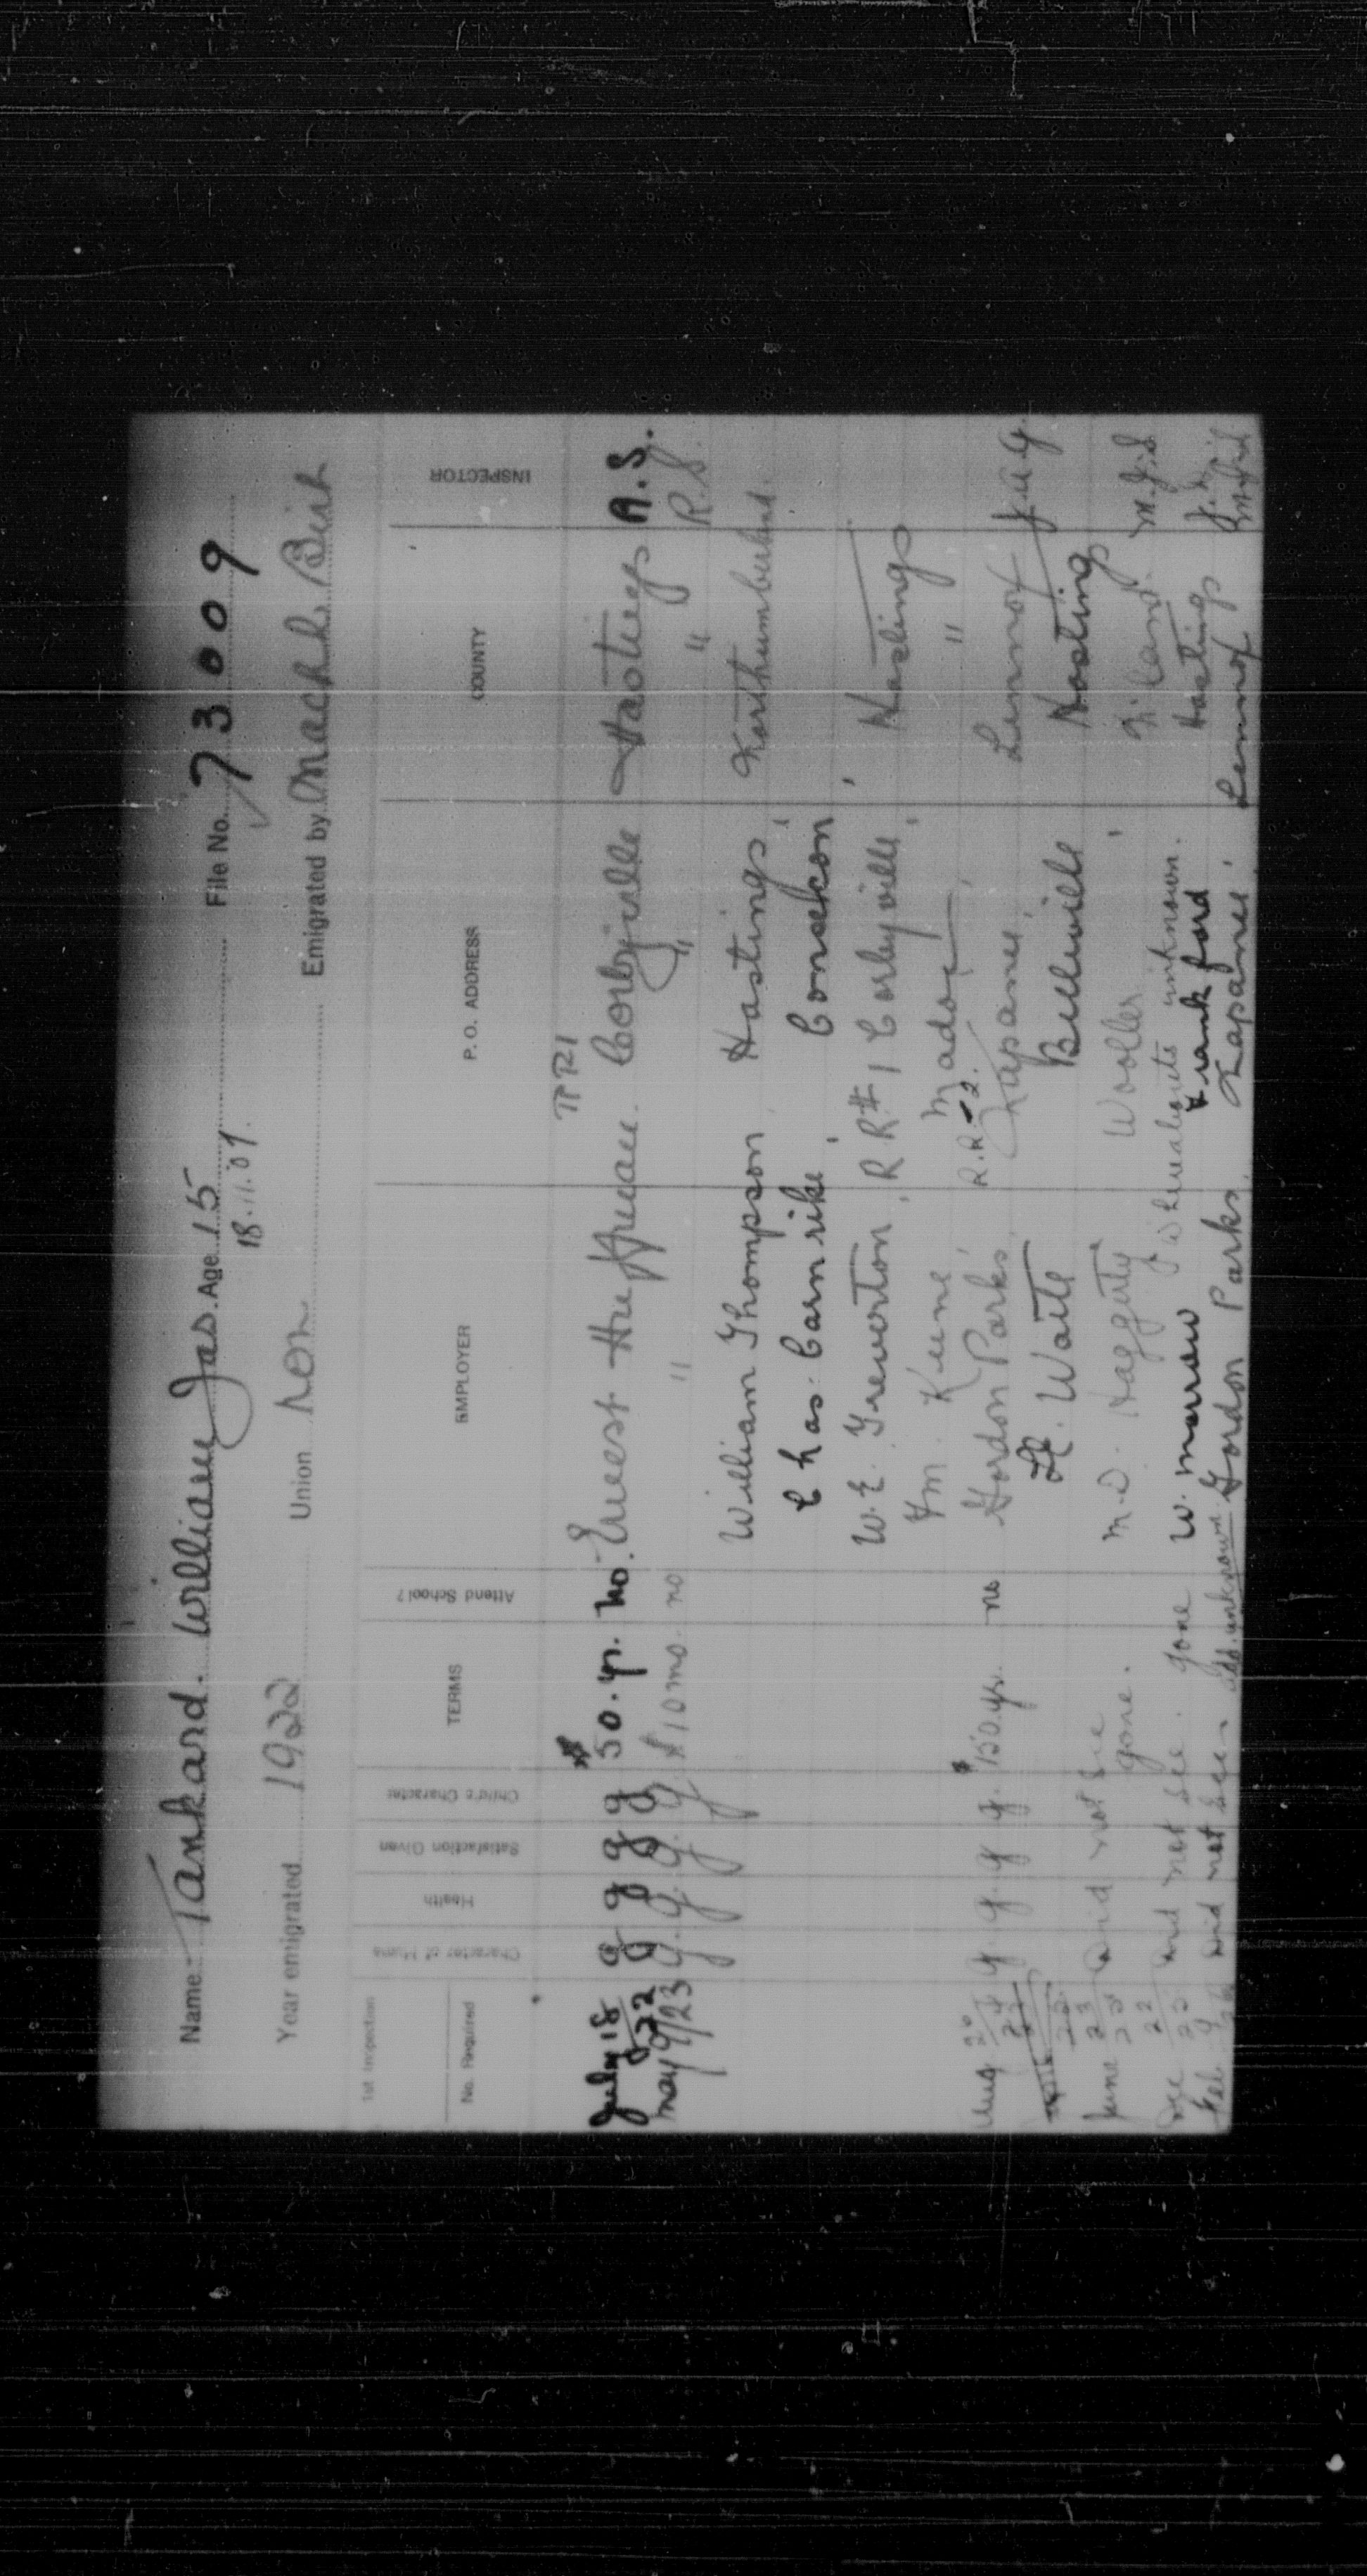 Name Tankard. William Jas. Age 15 File No. 73009
18.11.07.
Year emigrated 1922 Union Non Emigrated by
1st Inspection
No. Required Character of Home Health Satisfaction Given Child's Character TERMS Attend School? EMPLOYER P. O. ADDRESS COUNTY INSPECTOR
July 18/22 g g g g $50. yr. no. Ernest Huffman. Corbyville Hastings A.S.
May 9/23 g. g. g. g. $10 mo. no " " " R.S.
William Thompson, Hastings, Northumberland.
Chas. Carnrike, Consecon,
W. E. Treverton, R R #1 Corbyville, Hastings
Wm. Keene, Madoc, "
R.R. 2.
Aug 26/24 g g. g g. $150. yr. no Gordon Parks, Napanee, Lennox
Waite Belleville Hastings
June 23/25 Did not see gone. M. D. Haggerty, Wooller,
Whereabouts unknown.
Dec 22/25 Did not see. gone W. Morrow Frankford Hastings
Feb 9 Did not see. add. unknown. Gordon Parks, Napanee, Lennox